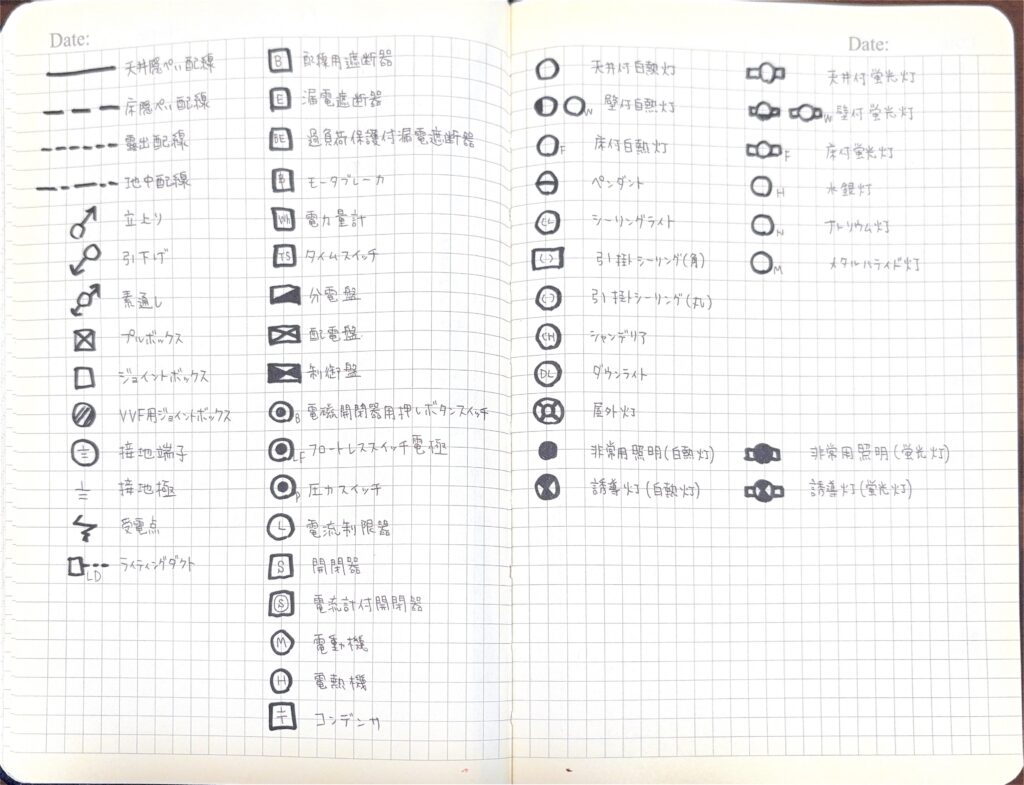 Date:
天井隠ぺい配線
床隠ぺい配線
露出配線
地中配線
立上り
引下げ
素通し
プルボックス
ジョイントボックス
VVF用ジョイントボックス
接地端子
接地極
受電点
LD ライティングダクト
B 配線用遮断器
E 漏電遮断器
BE 過負荷保護付漏電遮断器
B モータブレーカ
Wh 電力量計
TS タイムスイッチ
分電盤
配電盤
制御盤
B 電磁開閉器用押しボタンスイッチ
LF フロートレススイッチ電極
P 圧力スイッチ
L 電流制限器
S 開閉器
S 電流計付開閉器
M 電動機
H 電熱機
コンデンサ
Date:
天井付白熱灯
W 壁付白熱灯
F 床付白熱灯
ペンダント
CL シーリングライト
引掛シーリング(角)
引掛シーリング(丸)
CH シャンデリア
DL ダウンライト
屋外灯
非常用照明(白熱灯)
誘導灯(白熱灯)
天井付蛍光灯
W 壁付蛍光灯
F 床付蛍光灯
H 水銀灯
N ナトリウム灯
M メタルハライド灯
非常用照明(蛍光灯)
誘導灯(蛍光灯)